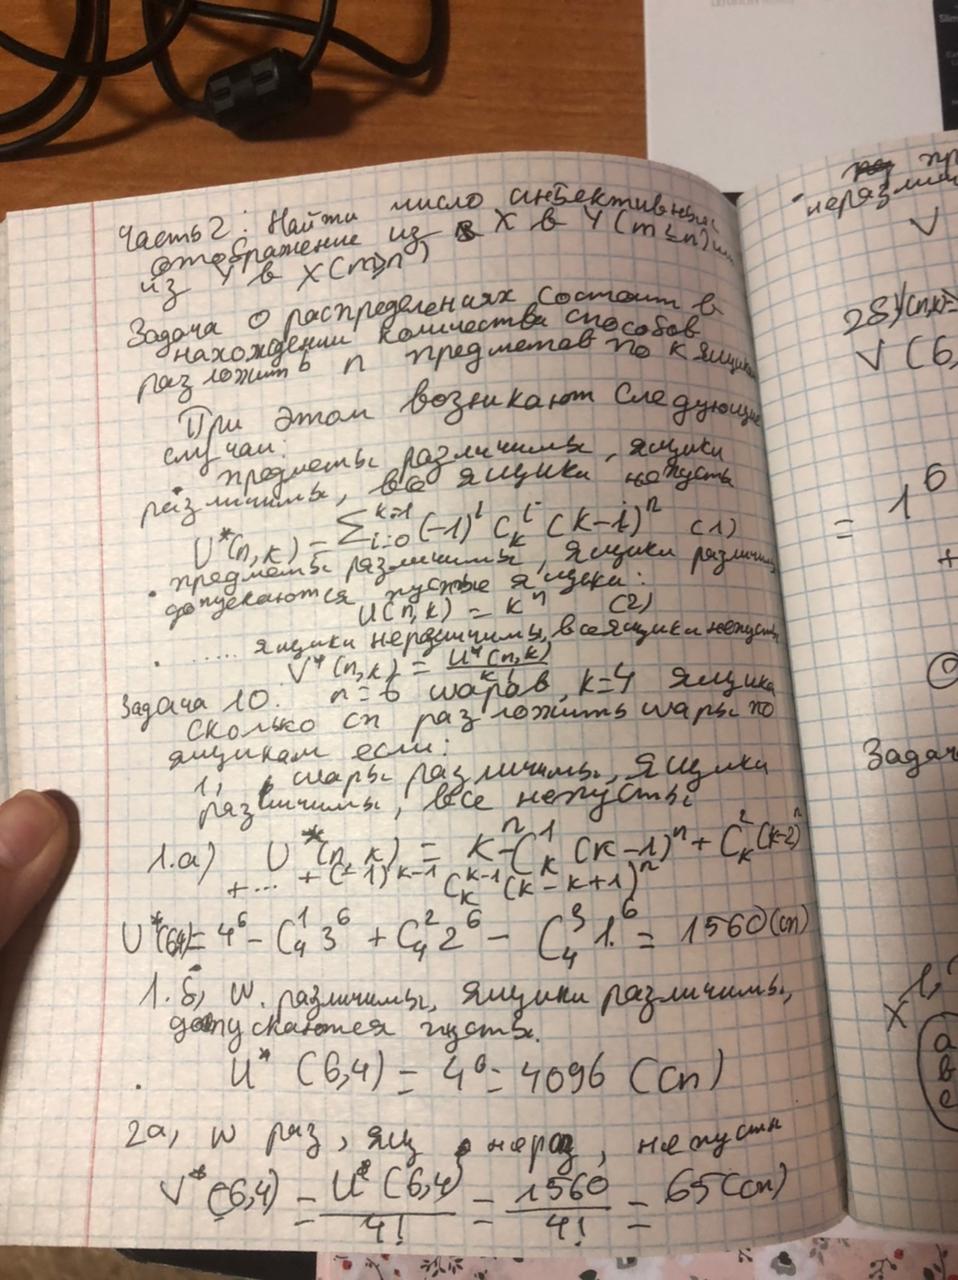 Часть 2: Найти число инъективных
отображение из X в Y (m≤n) или
из Y в X (m≥n)
Задача о распределениях состоит в
нахождении количества способов
разложить n предметов по k ящикам
При этом возникают следующие
случаи:
• предметы различимы, ящики
различимы, все ящики непусты
U*(n,k) = ∑_{i=0}^{k-1} (-1)^i C_k^i (k-i)^n (1)
• предметы различимы, ящики различимы
допускаются пустые ящики:
U(n,k) = k^n (2)
• ...... ящики неразличимы, все ящики непусты
V*(n,k) = U*(n,k)/k!
Задача 10. n=6 шаров, k=4 ящика
сколько сп разложить шары по
ящикам если:
1, шары различимы, ящики
различимы, все непусты
1.а) U*(n,k) = k^n - C_k^1 (k-1)^n + C_k^2 (k-2)^n
+ ... + (-1)^{k-1} C_k^{k-1} (k-k+1)^n
U*(6,4) = 4^6 - C_4^1 3^6 + C_4^2 2^6 - C_4^3 1^6 = 1560 (сп)
1.б, ш. различимы, ящики различимы,
допускаются пусты.
U* (6,4) = 4^6 = 4096 (сп)
2а, ш раз, ящ нераз, непусты
V*(6,4) = U*(6,4)/4! = 1560/4! = 65 (сп)
пр
неразличим
V
2б)
V (6,
= 1^6
+
Задач
1,
X
а
в
с